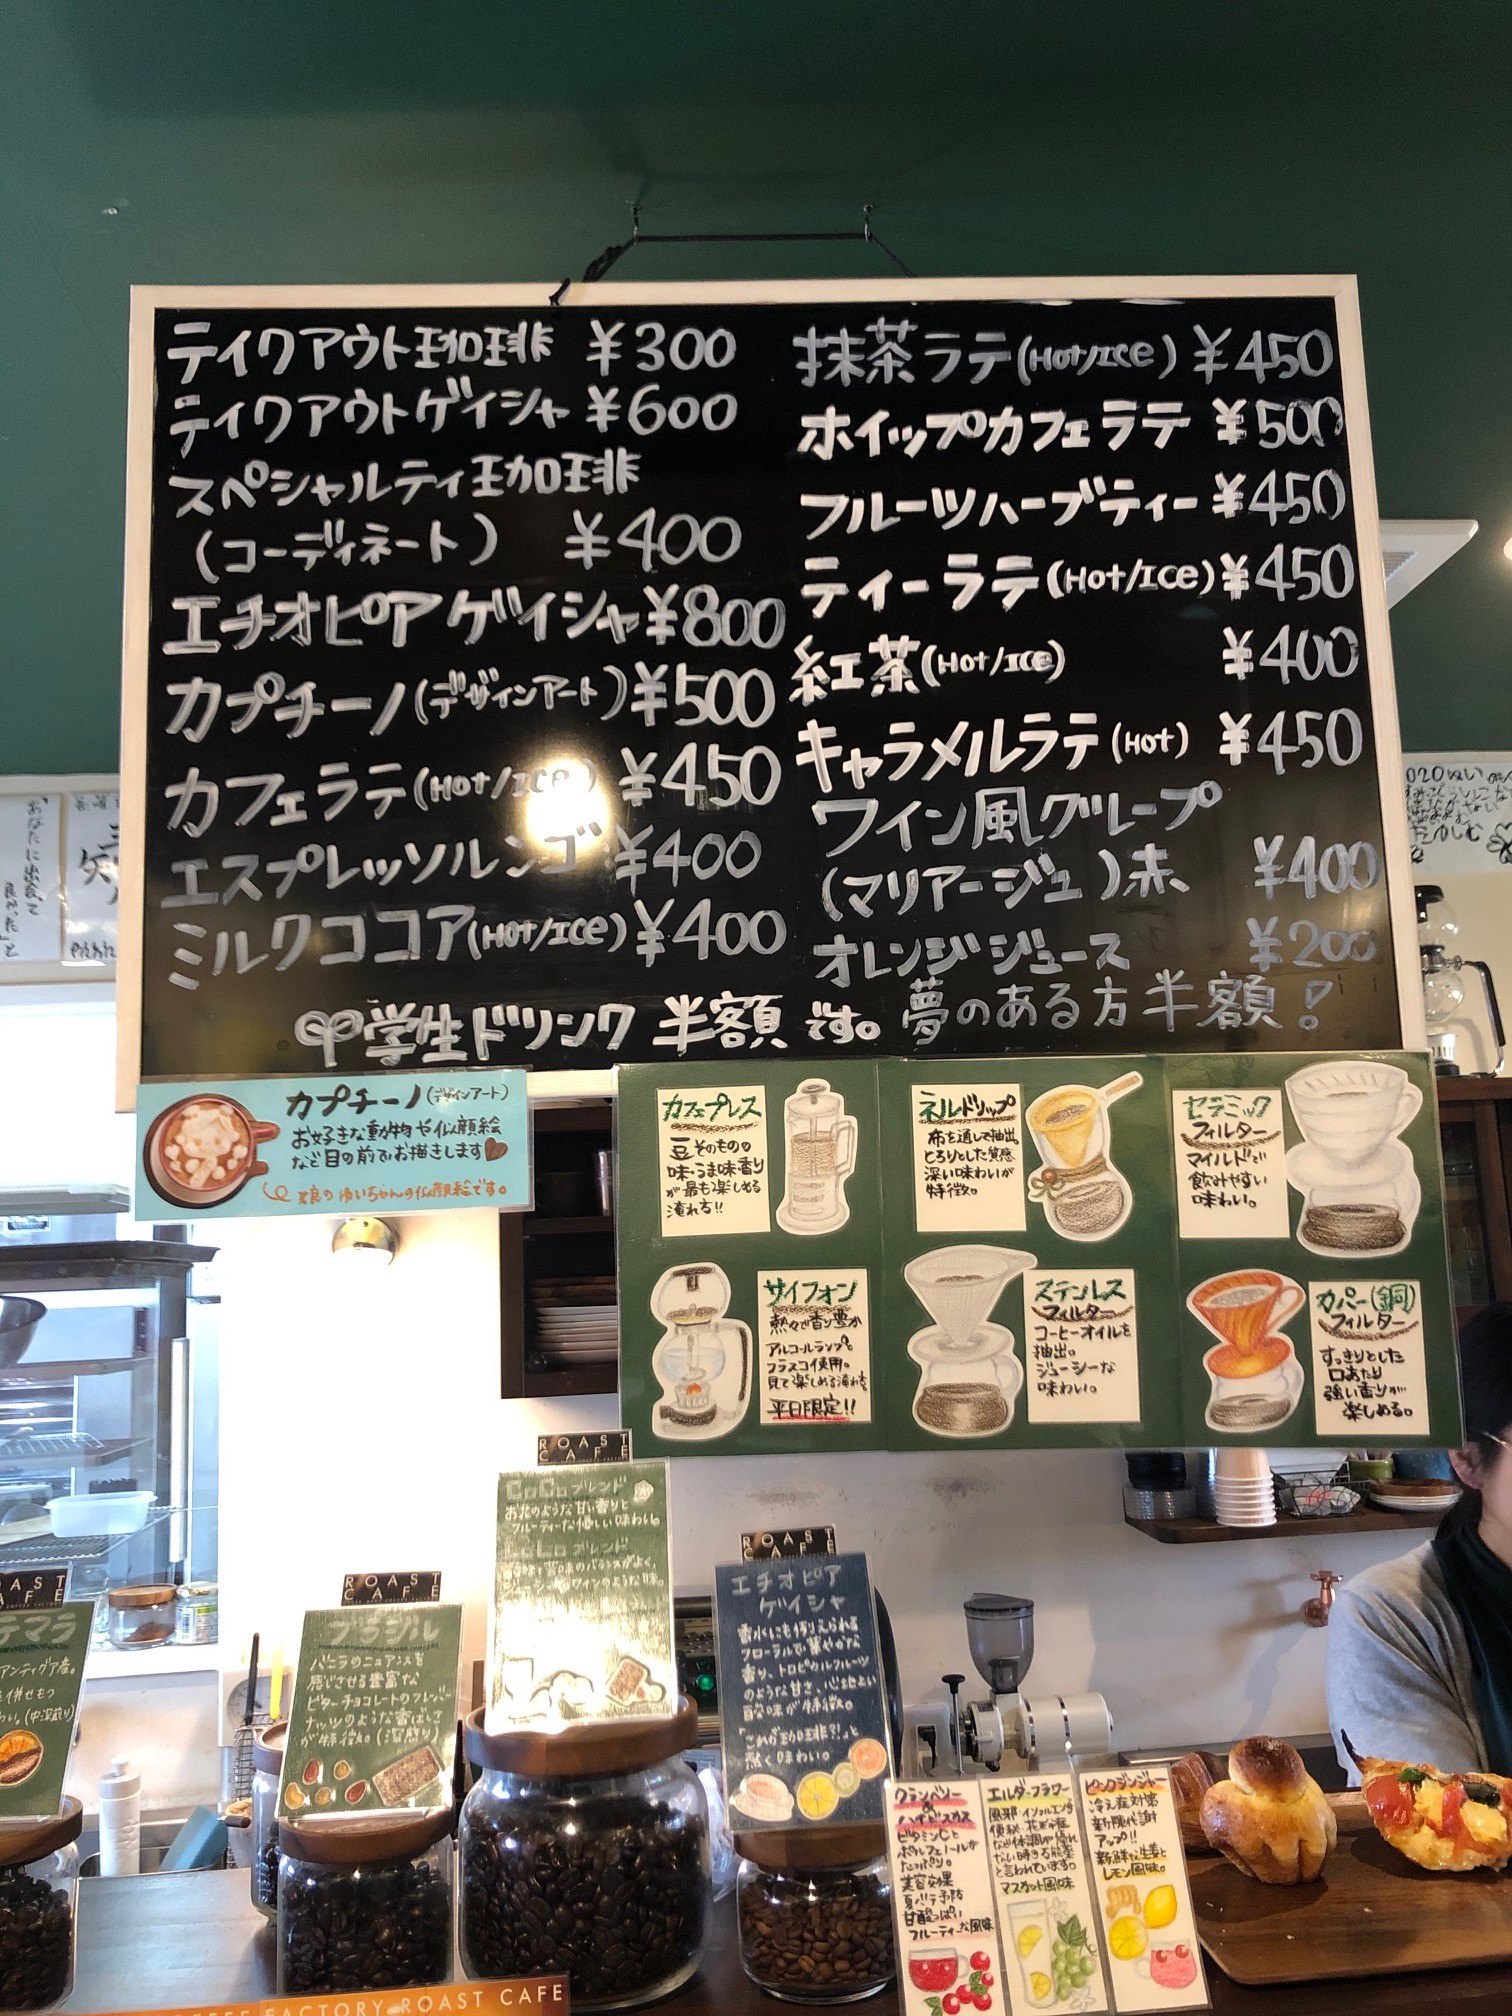 テイクアウト珈琲 ¥300
テイクアウトゲイシャ ¥600
スペシャルティ珈琲
(コーディネート) ¥400
エチオピア ゲイシャ ¥800
カプチーノ(デザインアート) ¥500
カフェラテ(Hot/Ice) ¥450
エスプレッソルンゴ ¥400
ミルクココア(Hot/Ice) ¥400
抹茶ラテ(Hot/Ice) ¥450
ホイップカフェラテ ¥500
フルーツハーブティー ¥450
ティーラテ(Hot/Ice) ¥450
紅茶(Hot/Ice) ¥400
キャラメルラテ(Hot) ¥450
ワイン風グループ
(マリアージュ)赤 ¥400
オレンジジュース ¥200
学生ドリンク 半額 です。夢のある方半額!
カプチーノ(デザインアート)
お好きな動物や似顔絵
など目の前でお描きします
娘のゆいちゃんの似顔絵です。
カフェプレス
豆そのものの
味・うま味香り
が最も楽しめる
淹れ方!!
ネルドリップ
布を通して抽出。
とろりとした質感
深い味わいが
特徴。
セラミック
フィルター
マイルドで
飲みやすい
味わい。
サイフォン
熱々で香り豊か
アルコールランプと
フラスコ使用。
見て楽しめる淹れ方。
平日限定!!
ステンレス
フィルター
コーヒーオイルを
抽出。
ジューシーな
味わい。
カパー(銅)
フィルター
すっきりとした
口あたり
強い香りが
楽しめる。
"あなたに出会て
良かった"と
ROAST
CAFE
CoCoブレンド
お花のような甘い香りと
フルーティーな優しい味わい。
ブレンド
ROAST
CAFE
ブラジル
バニラのニュアンスを
感じさせる豊富な
ビターチョコレートのフレーバー
ナッツのような香ばしさ
が特徴。(深煎り)
ROAST
CAFE
エチオピア
ゲイシャ
香水にも例えられる
フローラルで華やかな
香り、トロピカルフルーツ
のような甘さ、心地よい
酸味が特徴。
「これが珈琲?!」と
驚く味わい。
テマラ
アンティグア産。
併せもつ
わい。(中深煎り)
クランベリー
&
ハイビスカス
ビタミンCと
ポリフェノールが
たっぷり。
美容効果
夏バテ予防
甘酸っぱい
フルーティーな風味
エルダーフラワー
風邪・インフルエンザ
と言われています。
マスカット風味
ピンクジンジャー
冷え症対策
新陳代謝
アップ!!
新鮮な生姜と
レモン風味。
COFFEE FACTORY ROAST CAFE